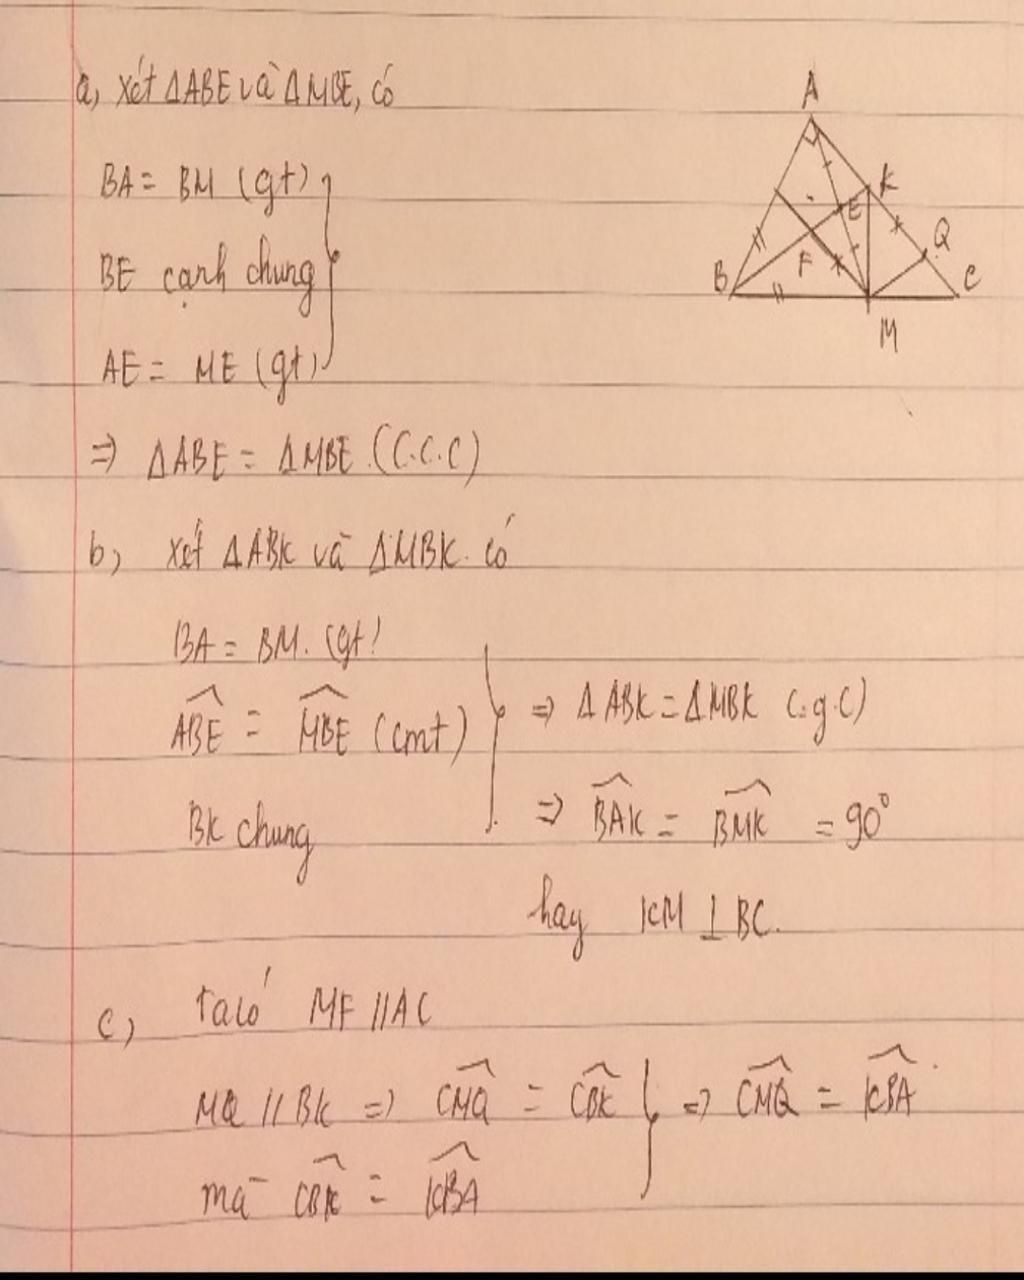 a, xét ΔABE và ΔMBE, có
BA = BM (gt)
BE cạnh chung
AE = ME (gt)
=> ΔABE = ΔMBE (C.C.C)
b, xét ΔABK và ΔMBK có
BA = BM. (gt)
\widehat{ABE} = \widehat{MBE} (cmt)
BK chung
=> ΔABK = ΔMBK C.g.C)
=> \widehat{BAK} = \widehat{BMK} = 90°
hay KM ⊥ BC.
c, Ta có MF // AC
MQ // BK => \widehat{CMQ} = \widehat{CBK}
mà \widehat{CBK} = \widehat{KBA}
=> \widehat{CMQ} = \widehat{KBA}
A
K
E
Q
B
F
C
M